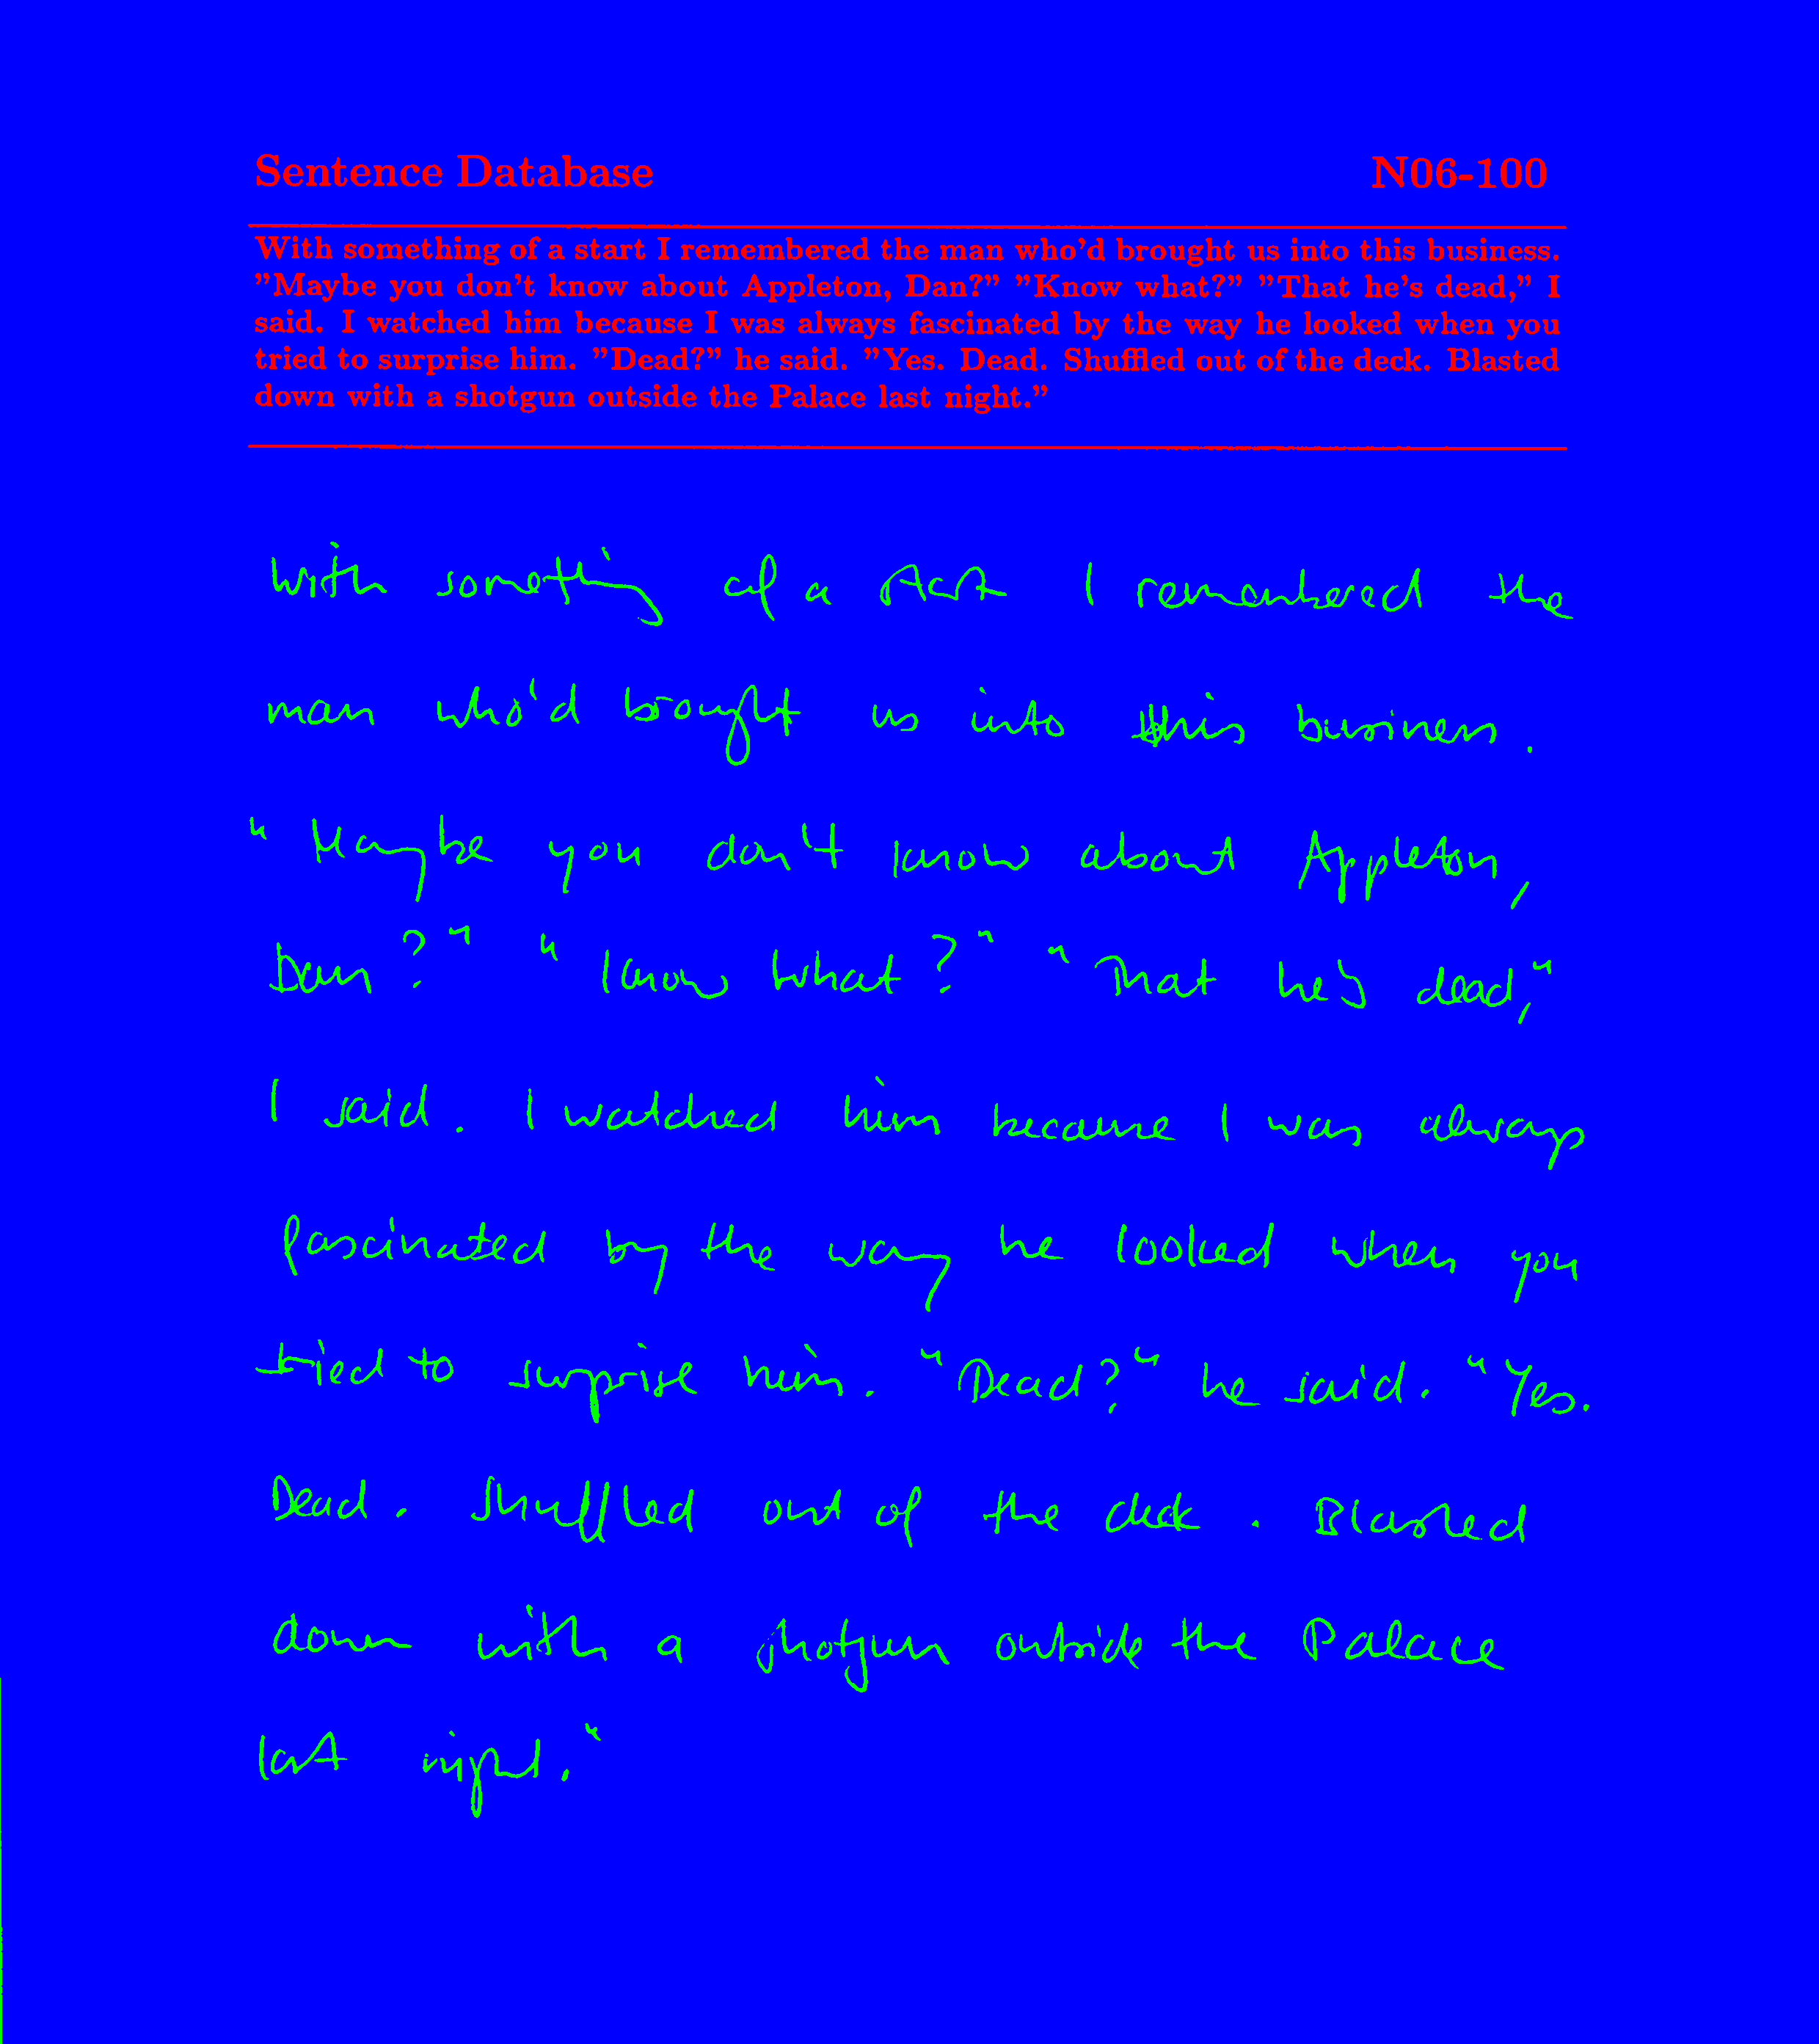 Sentence Database N06-100
With something of a start I remembered the man who'd brought us into this business.
"Maybe you don't know about Appleton, Dan?" "Know what?" "That he's dead," I
said. I watched him because I was always fascinated by the way he looked when you
tried to surprise him. "Dead?" he said. "Yes. Dead. Shuffled out of the deck. Blasted
down with a shotgun outside the Palace last night."
With something of a start I remembered the
man who'd brought us into this business.
"Maybe you don't know about Appleton,
Dan?" "Know what?" "That he's dead,"
I said. I watched him because I was always
fascinated by the way he looked when you
tried to surprise him. "Dead?" he said. "Yes.
Dead. Shuffled out of the deck. Blasted
down with a shotgun outside the Palace
last night."